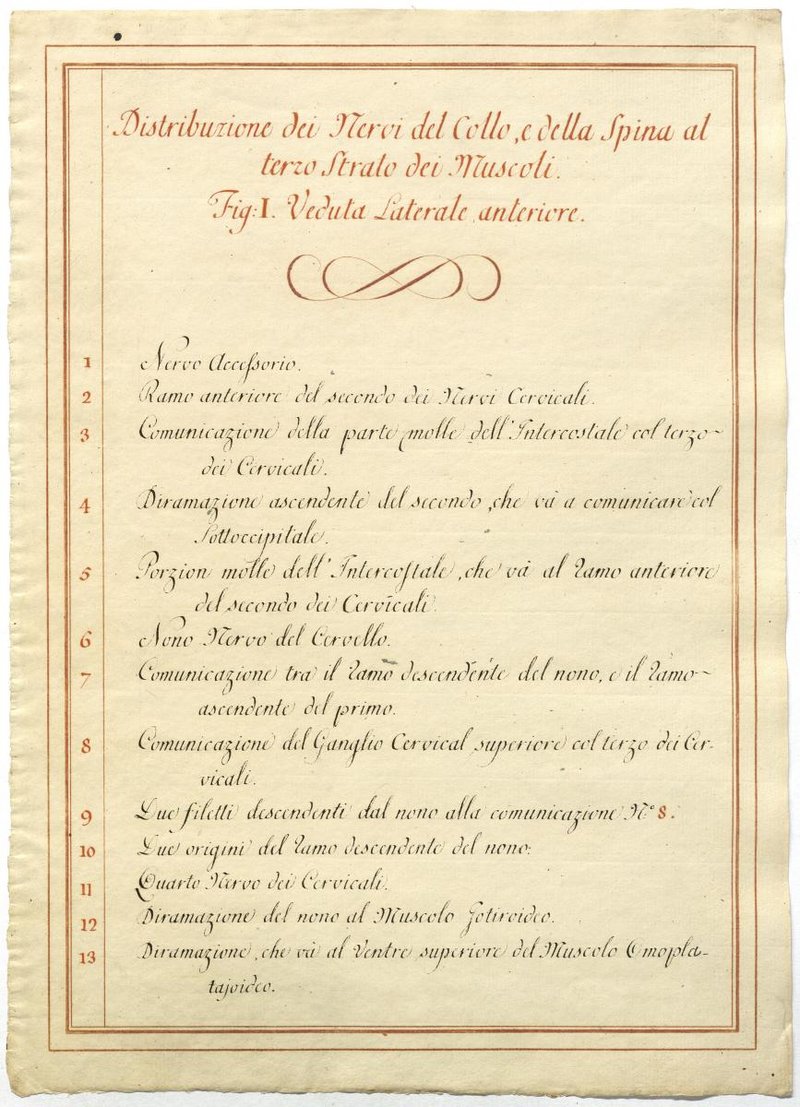 Distribuzione dei Nervi del Collo, e della Spina al
terzo Strato dei Muscoli.
Fig: I. Veduta Laterale anteriore.
1 Nervo Accessorio.
2 Ramo anteriore del secondo dei Nervi Cervicali.
3 Comunicazione della parte molle dell'Intercostale col terzo
dei Cervicali.
4 Diramazione ascendente del secondo, che và a comunicare col
Sottoccipitale.
5 Porzion molle dell'Intercostale, che và al ramo anteriore
del secondo dei Cervicali.
6 Nono Nervo del Cervello.
7 Comunicazione tra il ramo descendente del nono, e il ramo
ascendente del primo.
8 Comunicazione del Ganglio Cervical superiore col terzo dei Cer-
vicali.
9 Due filetti descendenti dal nono alla comunicazione N.° 8.
10 Due origini del ramo descendente del nono.
11 Quarto Nervo dei Cervicali.
12 Diramazione del nono al Muscolo Jotiroideo.
13 Diramazione, che và al Ventre superiore del Muscolo Omopla-
tajoideo.